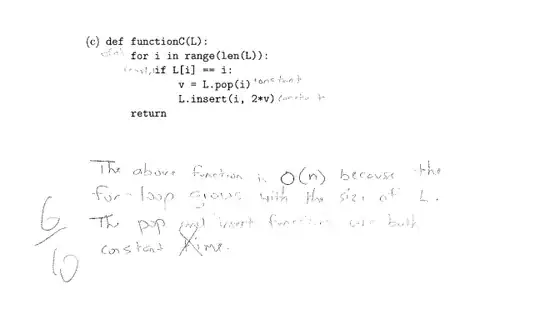 (c) def functionC(L):
o(n) for i in range(len(L)):
const. if L[i] == i:
v = L.pop(i) constant
L.insert(i, 2*v) constant
return
The above function is O(n) because the
for-loop grows with the size of L.
The pop and insert functions are both
constant time.
6/10